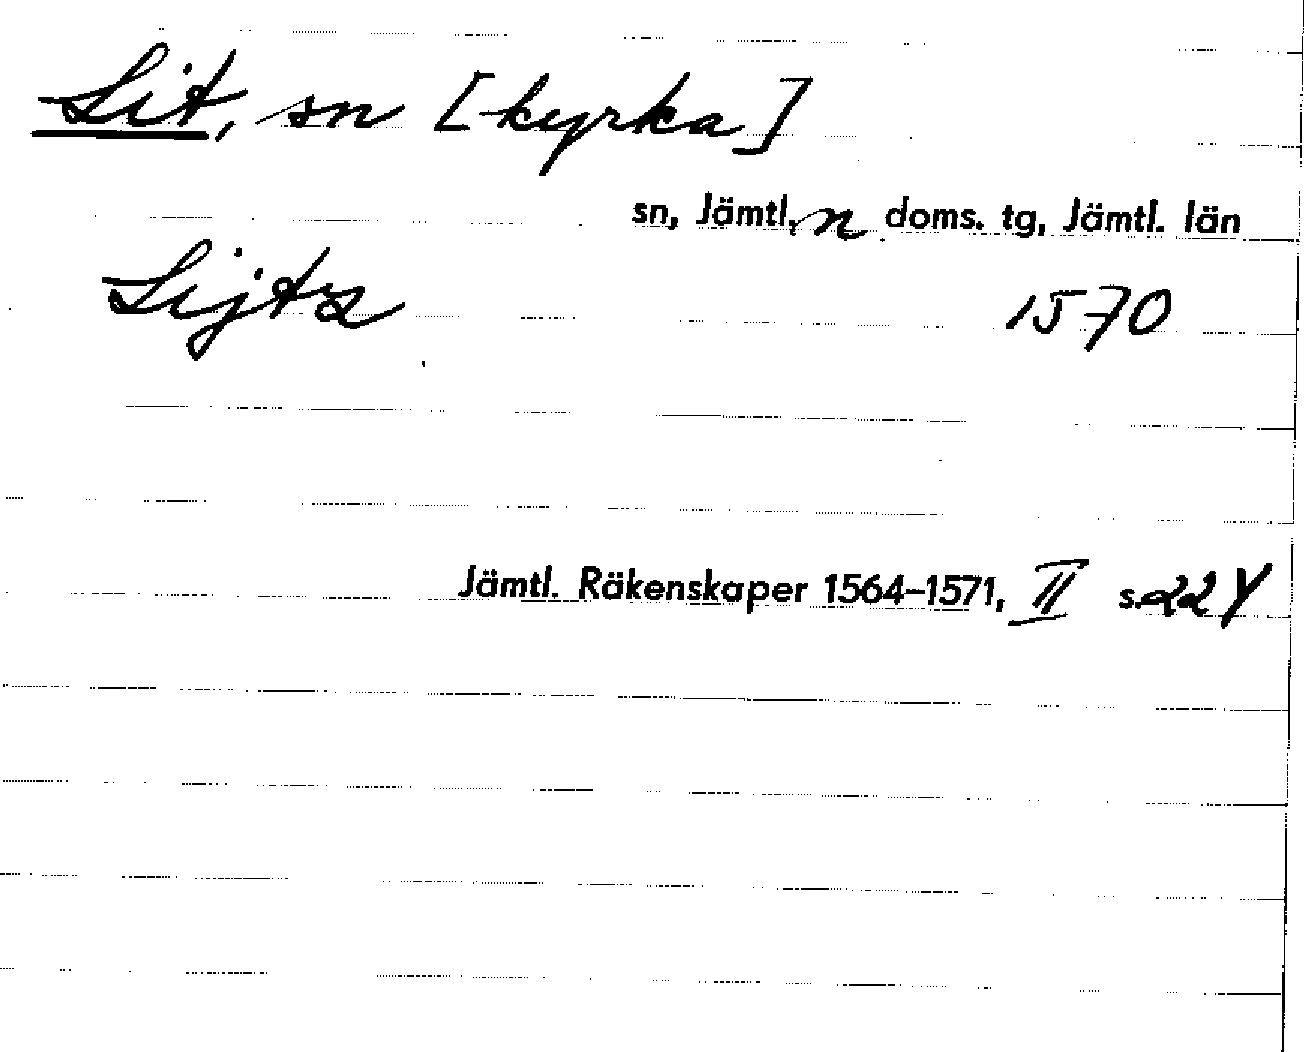 Lit, sn [kyrka]
sn, Jämtl, n doms. tg, Jämtl. län
Lijtz 1570
Jämtl. Räkenskaper 1564–1571, II s. 224